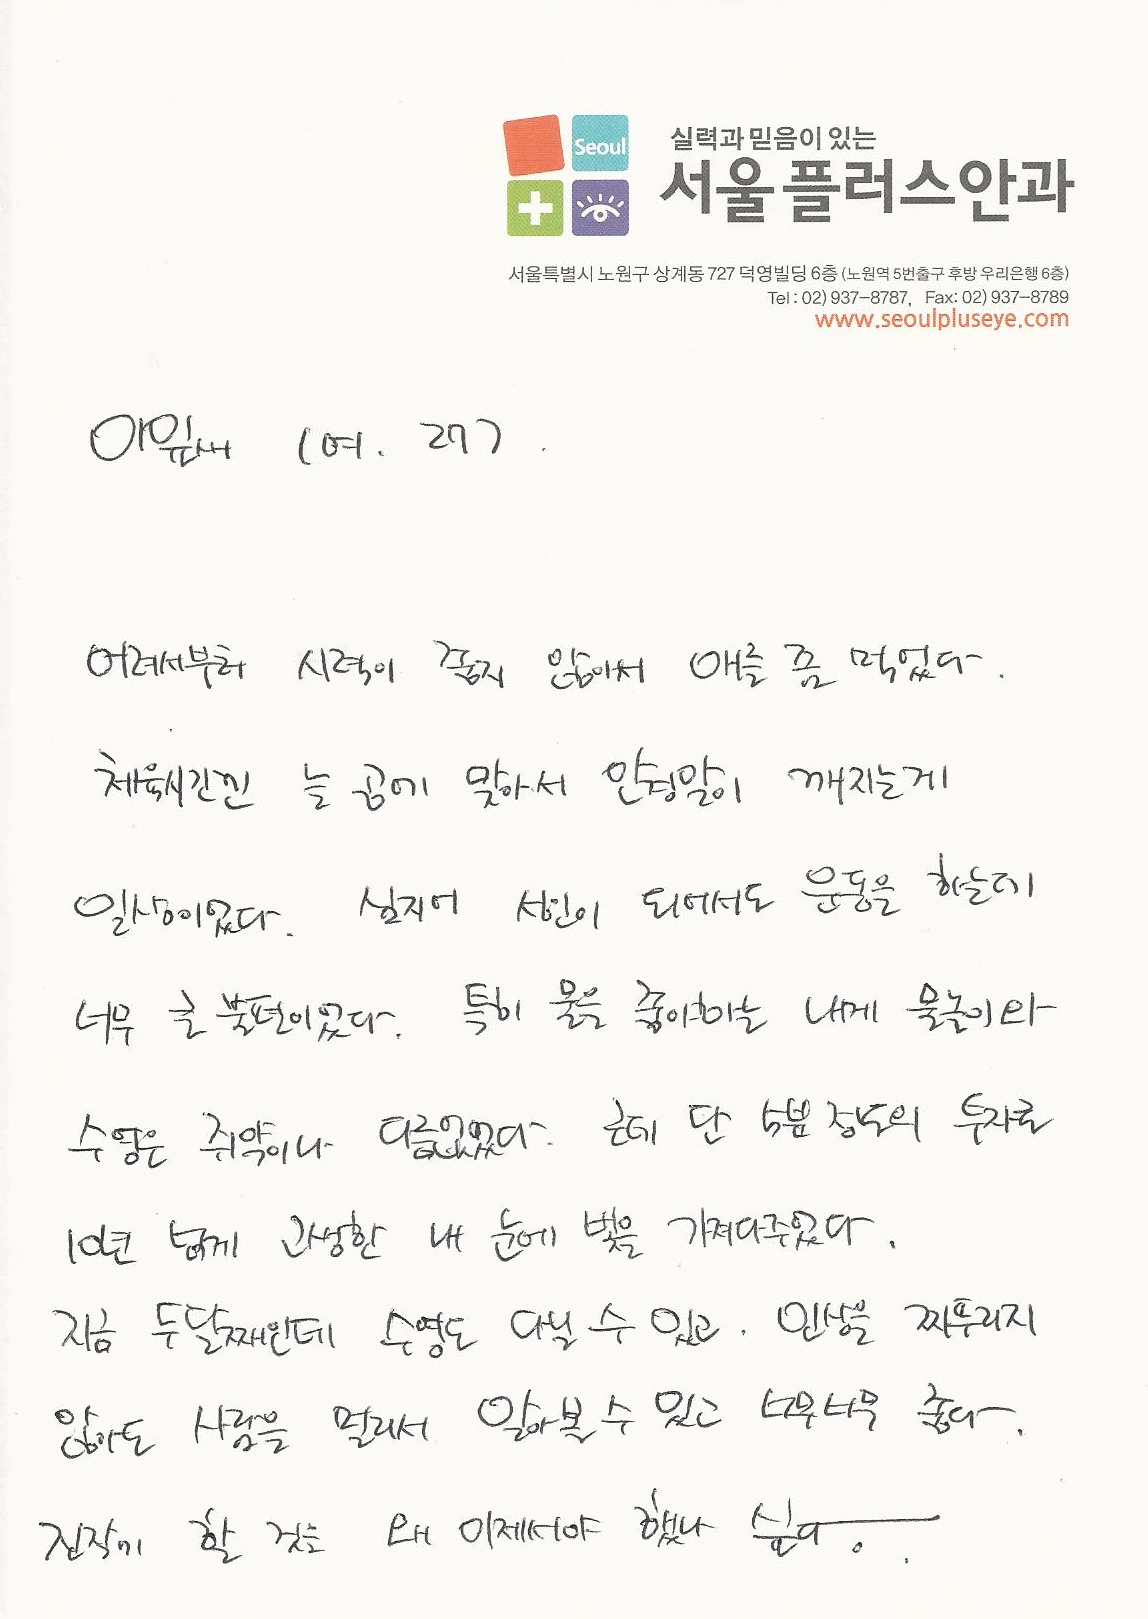 Seoul
실력과 믿음이 있는
서울플러스안과
서울특별시 노원구 상계동 727 덕영빌딩 6층 (노원역 5번출구 후방 우리은행 6층)
Tel : 02) 937-8787, Fax : 02) 937-8789
www.seoulpluseye.com
이잎새 (여. 27).
어려서부터 시력이 좋지 않아서 애를 좀 먹었다.
체육시간엔 늘 공에 맞아서 안경알이 깨지는게
일상이었다. 심지어 성인이 되어서도 운동을 하는데
너무 큰 불편이었다. 특히 물을 좋아하는 내게 물놀이와
수영은 쥐약이나 다름없었다. 근데 단 5분 정도의 투자로
10년 넘게 고생한 내 눈에 빛을 가져다주었다.
지금 두달째인데 수영도 다닐 수 있고. 인상을 찌푸리지
않아도 사람을 멀리서 알아볼 수 있고 너무너무 좋다.
진작에 할 것을 왜 이제서야 했나 싶다.